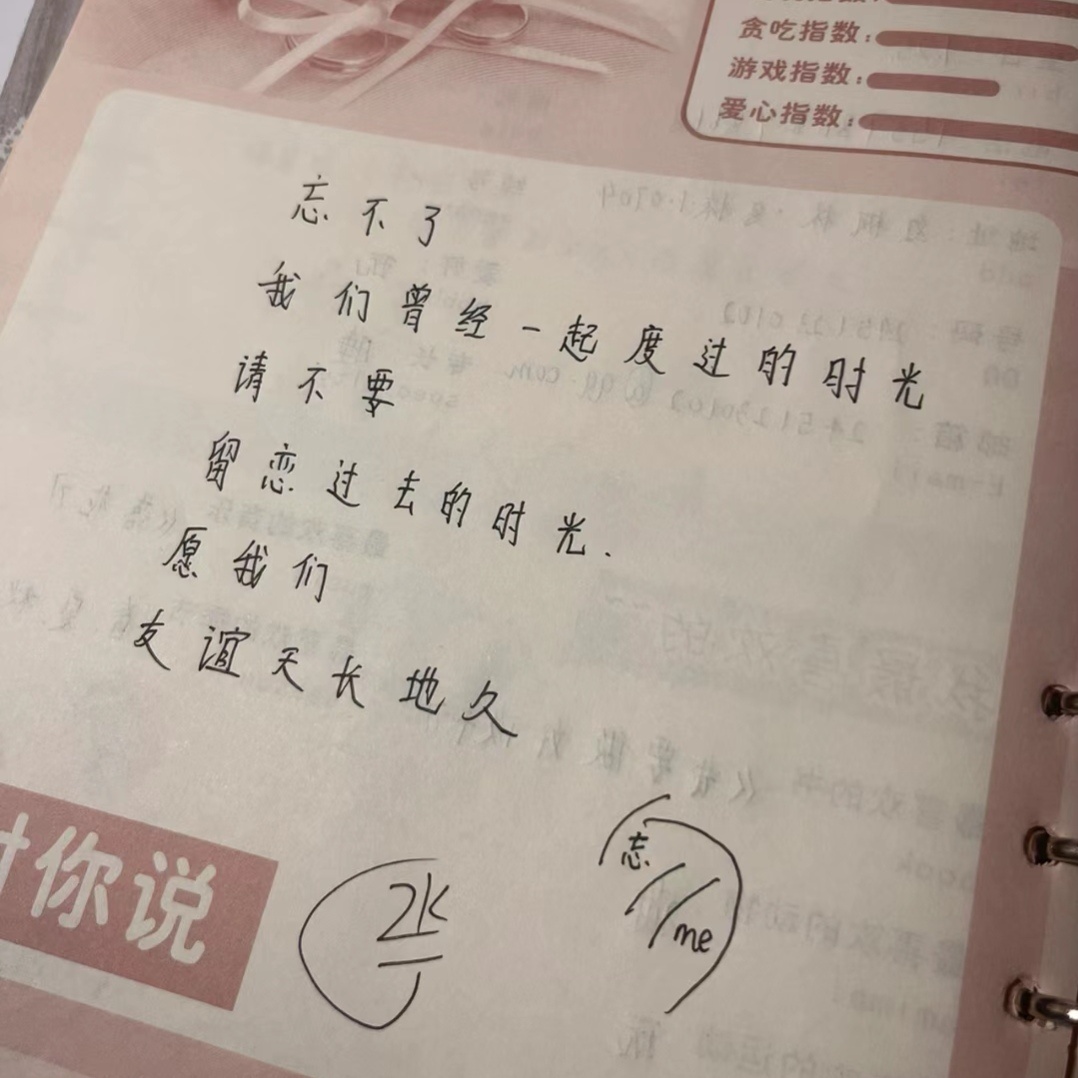 贪吃指数：
游戏指数：
爱心指数：
忘不了
我们曾经一起度过的时光
请不要
留恋过去的时光.
愿我们
友谊天长地久
忘
me
对你说